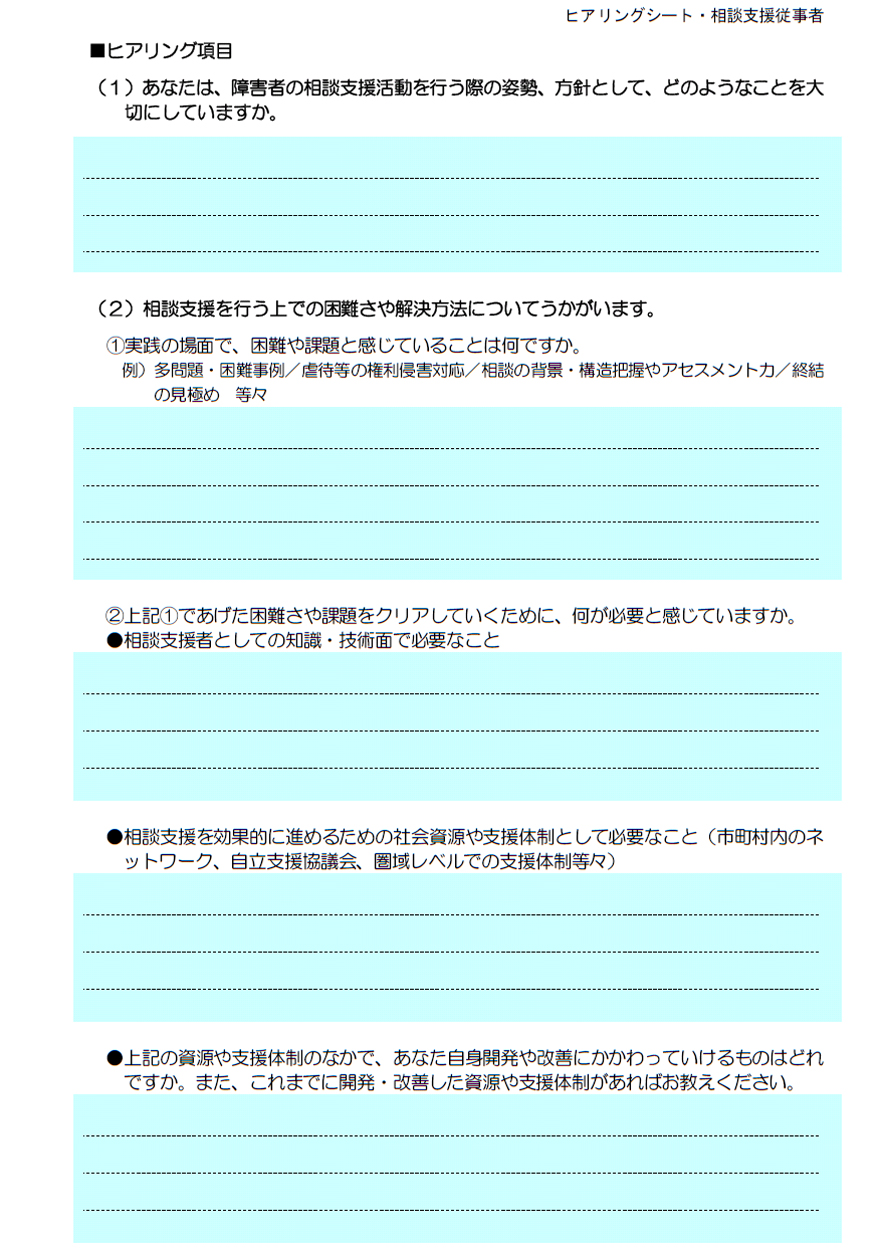 ヒアリングシート・相談支援従事者
■ヒアリング項目
（１）あなたは、障害者の相談支援活動を行う際の姿勢、方針として、どのようなことを大
切にしていますか。
（２）相談支援を行う上での困難さや解決方法についてうかがいます。
①実践の場面で、困難や課題と感じていることは何ですか。
例）多問題・困難事例／虐待等の権利侵害対応／相談の背景・構造把握やアセスメント力／終結
の見極め　等々
②上記①であげた困難さや課題をクリアしていくために、何が必要と感じていますか。
●相談支援者としての知識・技術面で必要なこと
●相談支援を効果的に進めるための社会資源や支援体制として必要なこと（市町村内のネ
ットワーク、自立支援協議会、圏域レベルでの支援体制等々）
●上記の資源や支援体制のなかで、あなた自身開発や改善にかかわっていけるものはどれ
ですか。また、これまでに開発・改善した資源や支援体制があればお教えください。